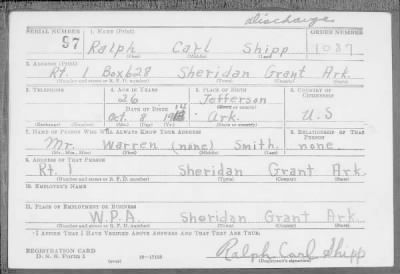 Discharge
SERIAL NUMBER 1. NAME (Print) ORDER NUMBER
97 Ralph Carl Shipp 1037
(First) (Middle) (Last)
2. ADDRESS (Print)
Rt. 1 Box 628 Sheridan Grant Ark.
(Number and street or R. F. D. number) (Town) (County) (State)
3. TELEPHONE 4. AGE IN YEARS 5. PLACE OF BIRTH 6. COUNTRY OF CITIZENSHIP
26 Jefferson
(Town or county)
DATE OF BIRTH
Oct. 8 Ark. U.S
(Exchange) (Number) (Mo.) (Day) (Yr.) (State or country)
7. NAME OF PERSON WHO WILL ALWAYS KNOW YOUR ADDRESS 8. RELATIONSHIP OF THAT PERSON
Mr. Warren (none) Smith none
(Mr., Mrs., Miss) (First) (Middle) (Last)
9. ADDRESS OF THAT PERSON
Rt. Sheridan Grant Ark.
(Number and street or R. F. D. number) (Town) (County) (State)
10. EMPLOYER'S NAME
11. PLACE OF EMPLOYMENT OR BUSINESS
W.P.A. Sheridan Grant Ark.
(Number and street or R. F. D. number) (Town) (County) (State)
I AFFIRM THAT I HAVE VERIFIED ABOVE ANSWERS AND THAT THEY ARE TRUE.
REGISTRATION CARD Ralph Carl Shipp
D. S. S. Form 1 (over) 16—17105 (Registrant's signature)